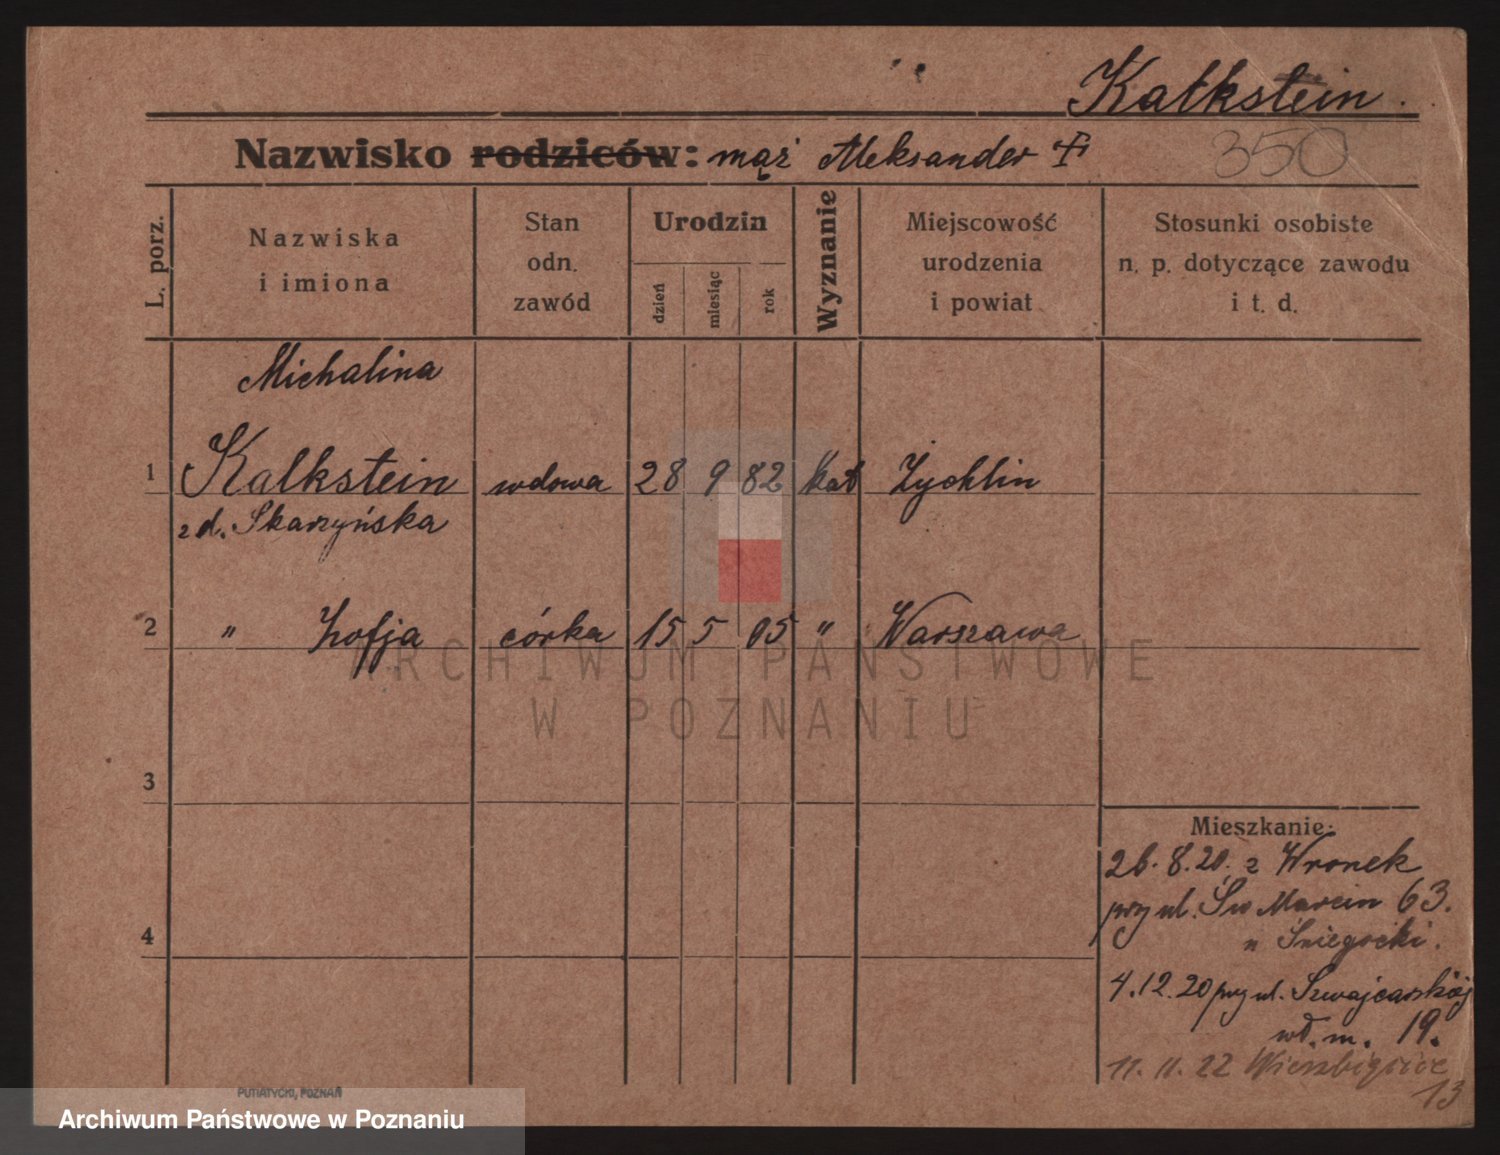 Kalkstein.
350
Nazwisko rodziców: mąż Aleksander
L. porz.
Nazwiska
i imiona
Stan
odn.
zawód
Urodzin
dzień
miesiąc
rok
Wyznanie
Miejscowość
urodzenia
i powiat
Stosunki osobiste
n. p. dotyczące zawodu
i t. d.
Michalina
1 Kalkstein wdowa 28 9 82 kat Żychlin
z d. Skarzyńska
2 " Zofja córka 15 5 05 " Warszawa
ARCHIWUM PAŃSTWOWE
W POZNANIU
3
4
Mieszkanie:
26.8.20. z Wronek
przy ul. Św Marcin 63.
u Śniegocki.
4.12.20 przy ul. Szwajcarskiej
wł. m. 19.
11.11.22 Wierzbięcice
13
PUTIATYCKI, POZNAŃ
Archiwum Państwowe w Poznaniu